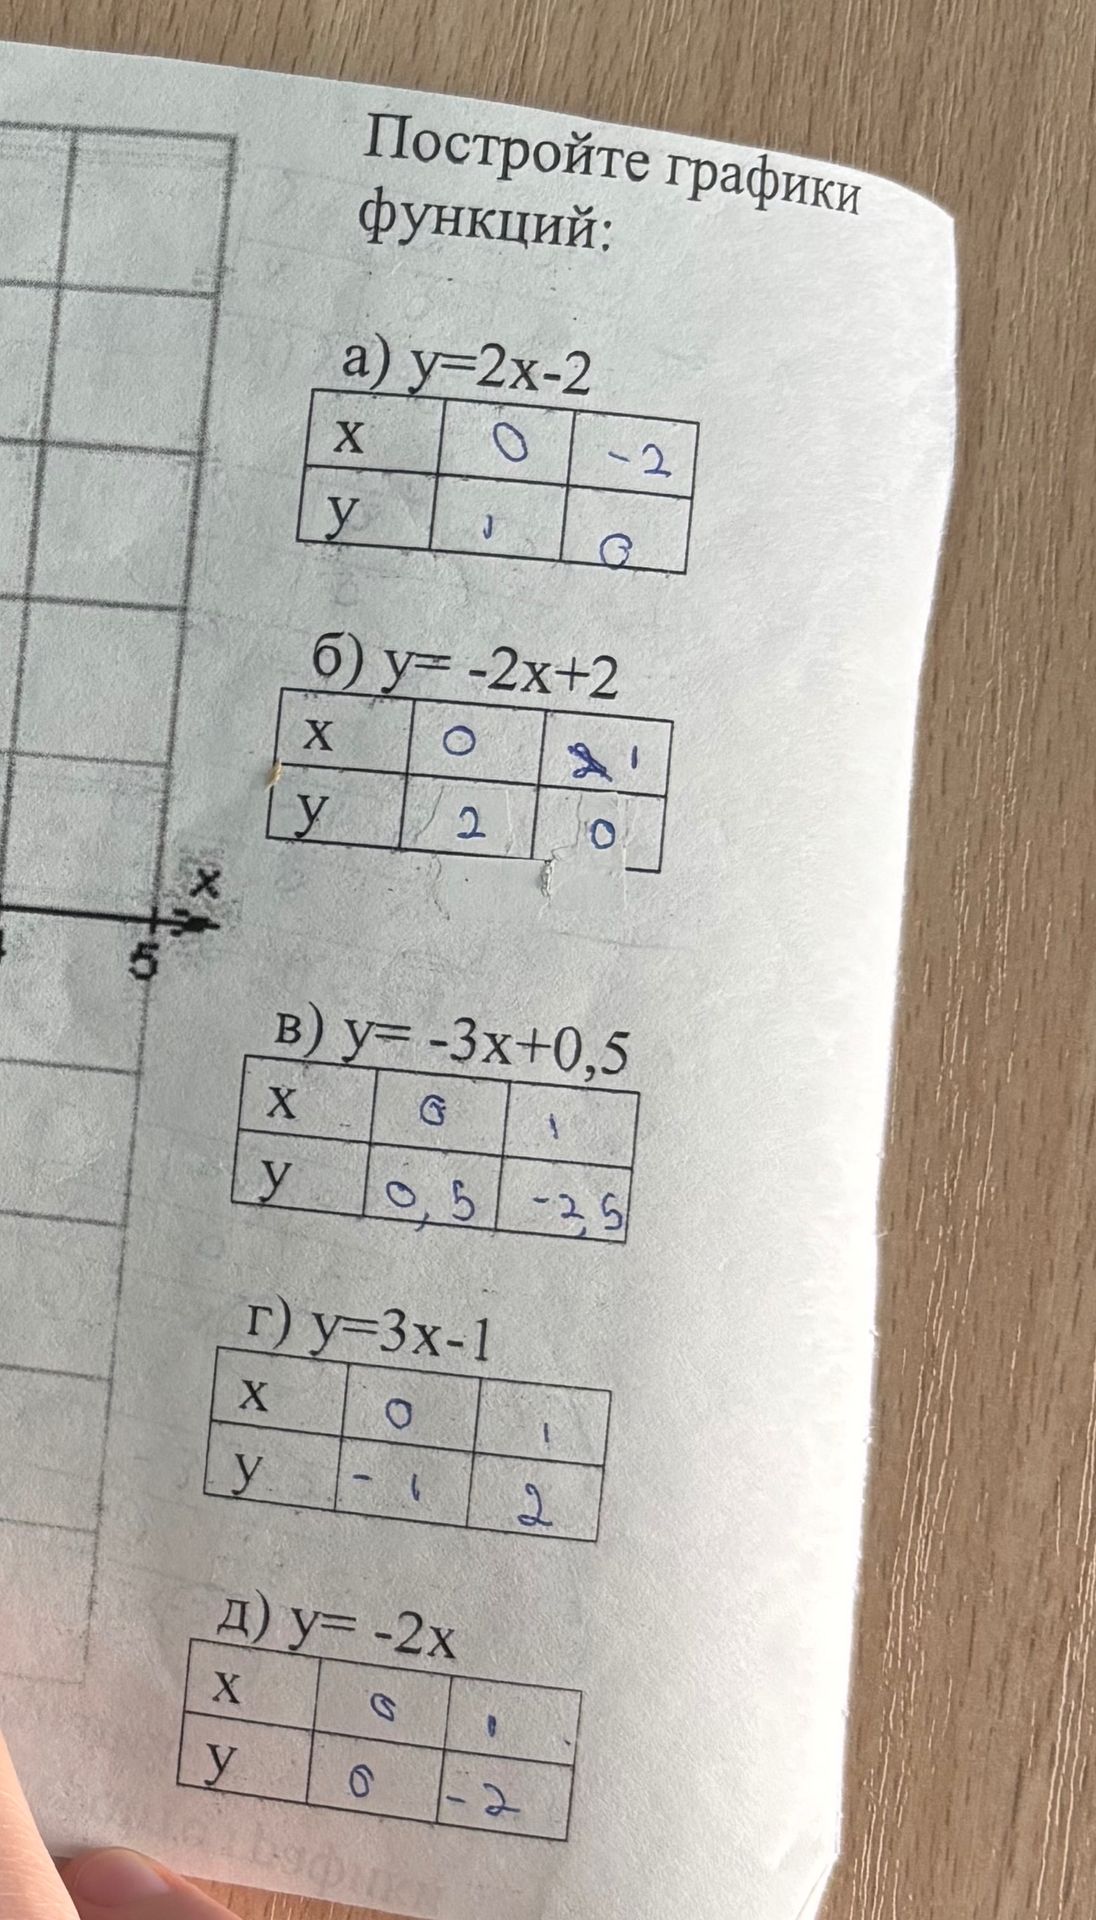 Постройте графики
функций:
а) y=2x-2
x 0 -2
y 1 0
б) y= -2x+2
x 0 1
y 2 0
x
5
в) y= -3x+0,5
x 0 1
y 0,5 -2,5
г) y=3x-1
x 0 1
y -1 2
д) y= -2x
x 0 1
y 0 -2